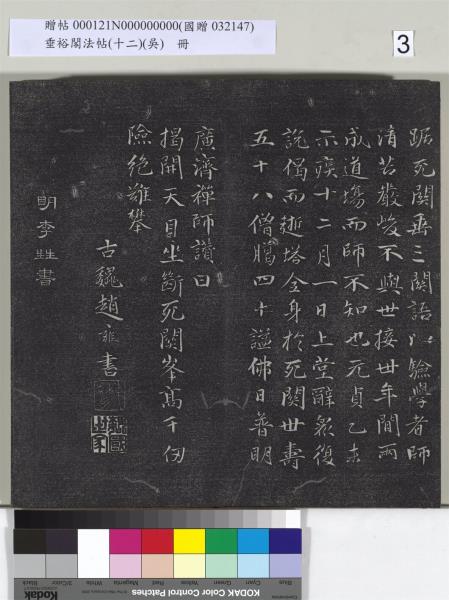 贈帖 000121N000000000(國贈 032147)
垂裕閣法帖(十二)(吳) 冊
3
踞死關垂三關語以驗學者師
清苦嚴峻不與世接丗年間兩
成道場而師不知也元貞乙未
示疾十二月一日上堂辭衆復
說偈而逝塔全身於死關世壽
五十八僧臘四十謚佛日普明
廣濟禪師讚曰
揭開天目坐斷死關峯高千仞
險絶難攀
古魏趙雍書
明李生書
Kodak Color Control Patches
Blue Cyan Green Yellow Red Magenta White 3/Color Black
Kodak